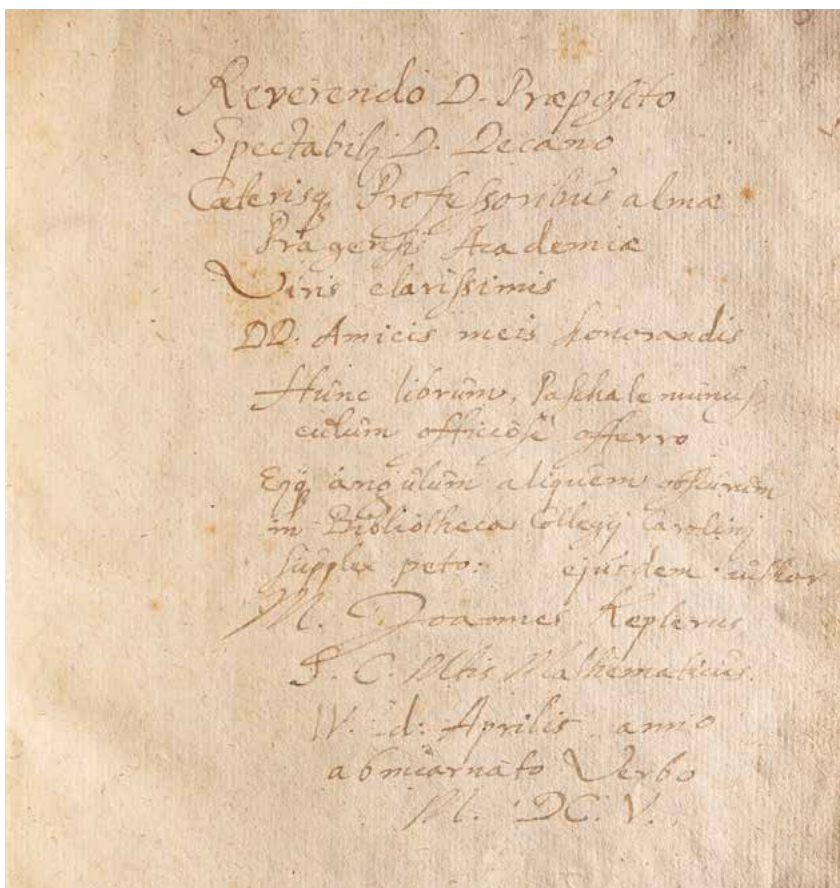 Reverendo D. Præposito
Spectabilj D. Decano
Cæterisq Professoribus almæ
Pragensis Academiæ
Viris clarissimis
DD. Amicis meis honorandis
Hunc librum, Paschale munus
culum officiosè offerro
Ejq angulum aliquem obscurum
in Bibliotheca Collegij Carolinj
supplex peto: ejusdem author
M. Joannes Keplerus
S. C. Mtis Mathematicus.
IV. d: Aprilis anno
ab incarnato Verbo
M. DC. V.